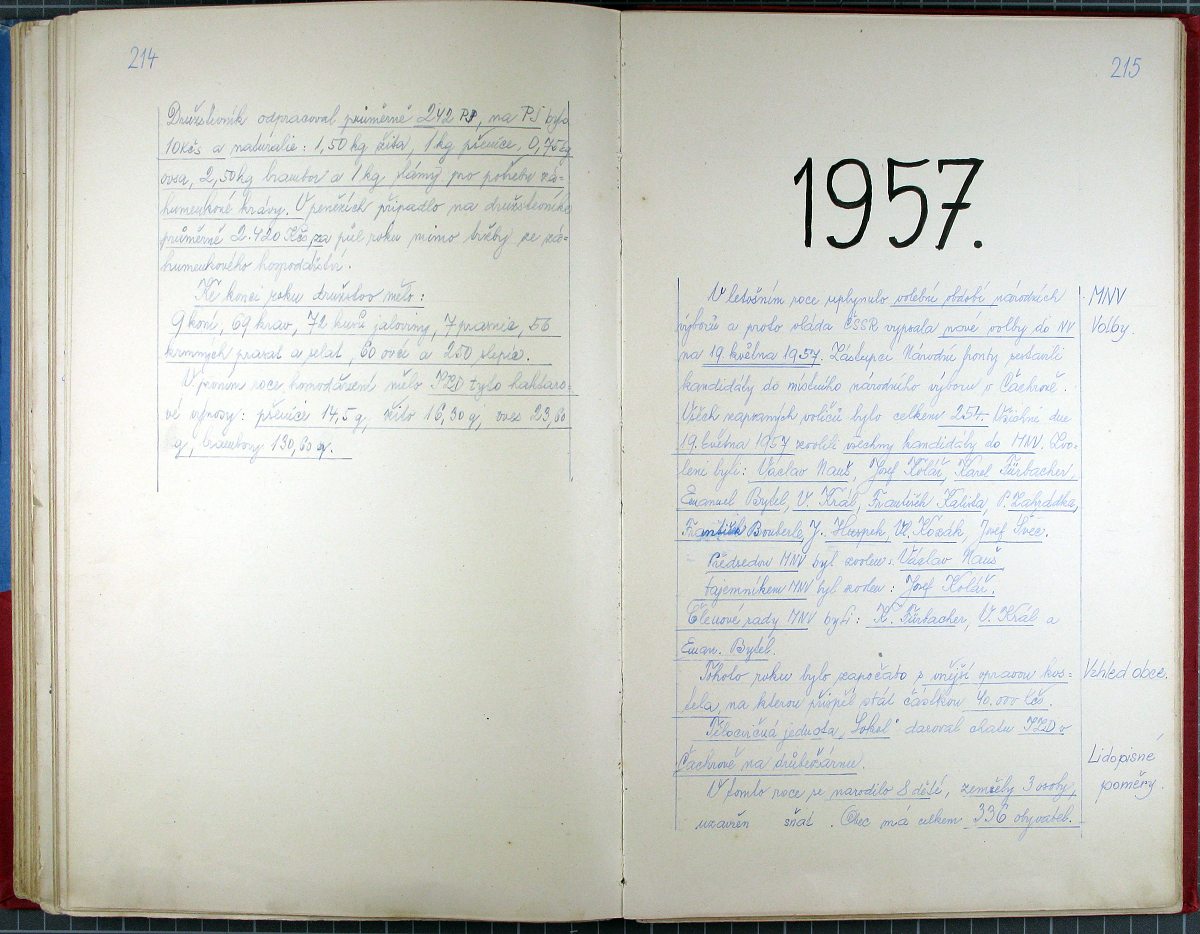 214
Družstevník odpracoval průměrně 242 PJ, na PJ bylo
10 Kčs a naturálie: 1,50 kg žita, 1 kg pšenice, 0,75 kg
ovsa, 2,50 kg brambor a 1 kg slámy pro potřebu zá-
humenkové krávy. V penězích připadlo na družstevníka
průměrně 2.420 Kčs za půl roku mimo tržby ze zá-
humenkového hospodářství.
Ke konci roku družstvo mělo:
9 koní, 69 krav, 72 kusů jaloviny, 7 prasnic, 56
krmných prasat a selat, 60 ovcí a 250 slepic.
V prvním roce hospodaření mělo JZD tyto hektaro-
vé výnosy: pšenice 14,5 q, žito 16,30 q, oves 23,80
q, brambory 130,80 q.
215
1957.
V letošním roce uplynulo volební období národních
výborů a proto vláda ČSSR vypsala nové volby do NV
na 19. května 1957. Zástupci Národní fronty sestavili
kandidáty do místního národního výboru v Čachrově.
Všech zapsaných voličů bylo celkem 254. Všichni dne
19. května 1957 zvolili všechny kandidáty do MNV. Zvo-
leni byli: Václav Nauš, Josef Kolář, Karel Fürbacher
Emanuel Bytel, V. Král, František Kalista, P. Zahrádka,
František Bouberle, J. Hospek, Vl. Kozák, Josef Švec.
Předsedou MNV byl zvolen: Václav Nauš
tajemníkem MNV byl zvolen: Josef Kolář.
Členové rady MNV byli: K. Fürbacher, V. Král a
Eman. Bytel.
Tohoto roku bylo započato s vnější opravou kos-
tela, na kterou přispěl stát částkou 40.000 Kčs.
Tělocvičná jednota „Sokol" daroval chatu JZD v
Čachrově na drůbežárnu.
V tomto roce se narodilo 8 dětí, zemřely 3 osoby,
uzavřen sňat . Obec má celkem 336 obyvatel.
MNV
Volby.
Vzhled obce.
Lidopisné
poměry.